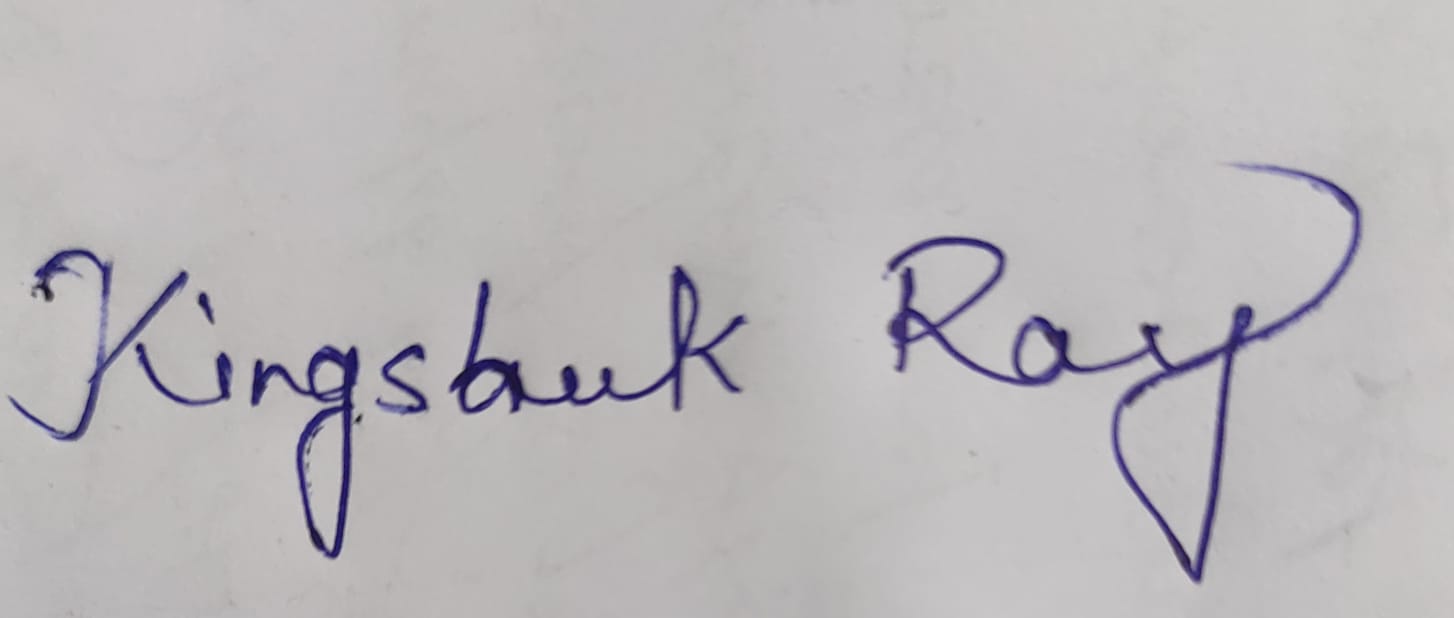 Kingsbuk Ray